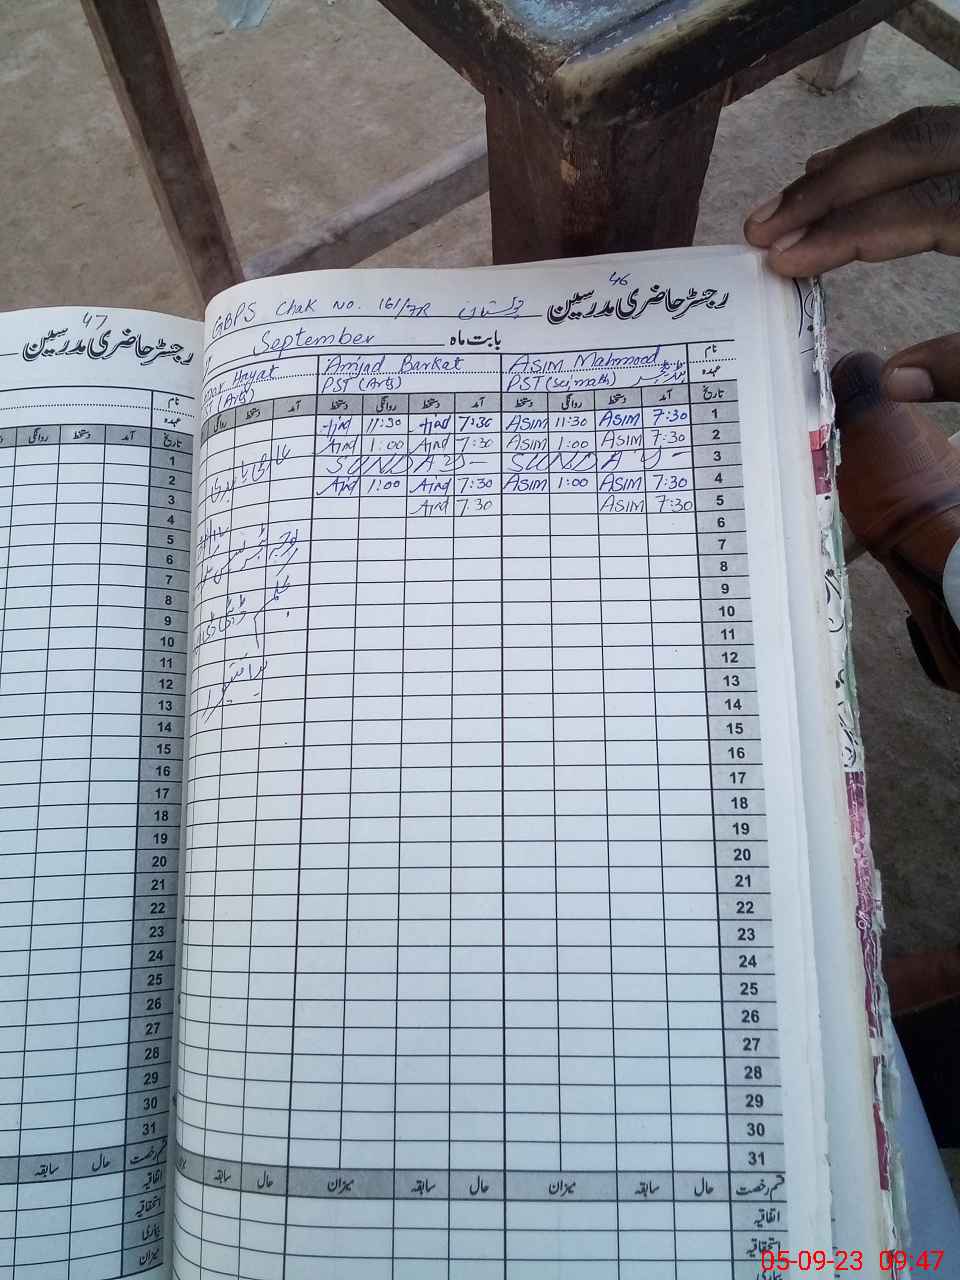 46
رجسٹر حاضری مدرسین
GBPS Chak No. 161/7R
بابت ماہ September
نام Asim Mahmood Amjad Barkat Hayat
عہدہ PST (Sci math) PST (Arts) (Arts)
تاریخ آمد دستخط روانگی دستخط آمد دستخط روانگی دستخط آمد دستخط روانگی
1 7:30 Asim 11:30 Asim 7:30 Ajad 11:30 Ajad
2 7:30 Asim 1:00 Asim 7:30 Ajad 1:00 Ajad
3 SUNDAY SUNDAY
4 7:30 Asim 1:00 Asim 7:30 Ajad 1:00 Ajad
5 7:30 Asim 7:30 Ajad
6
7
8
9
10
11
12
13
14
15
16
17
18
19
20
21
22
23
24
25
26
27
28
29
30
31
قسم رخصت حال سابقہ میزان حال سابقہ میزان حال سابقہ
اتفاقیہ
استحقاقیہ
بیماری
47
رجسٹر حاضری مدرسین
نام
عہدہ
تاریخ آمد دستخط روانگی
1
2
3
4
5
6
7
8
9
10
11
12
13
14
15
16
17
18
19
20
21
22
23
24
25
26
27
28
29
30
31
قسم رخصت حال سابقہ
اتفاقیہ
استحقاقیہ
بیماری
میزان
05-09-23 09:47